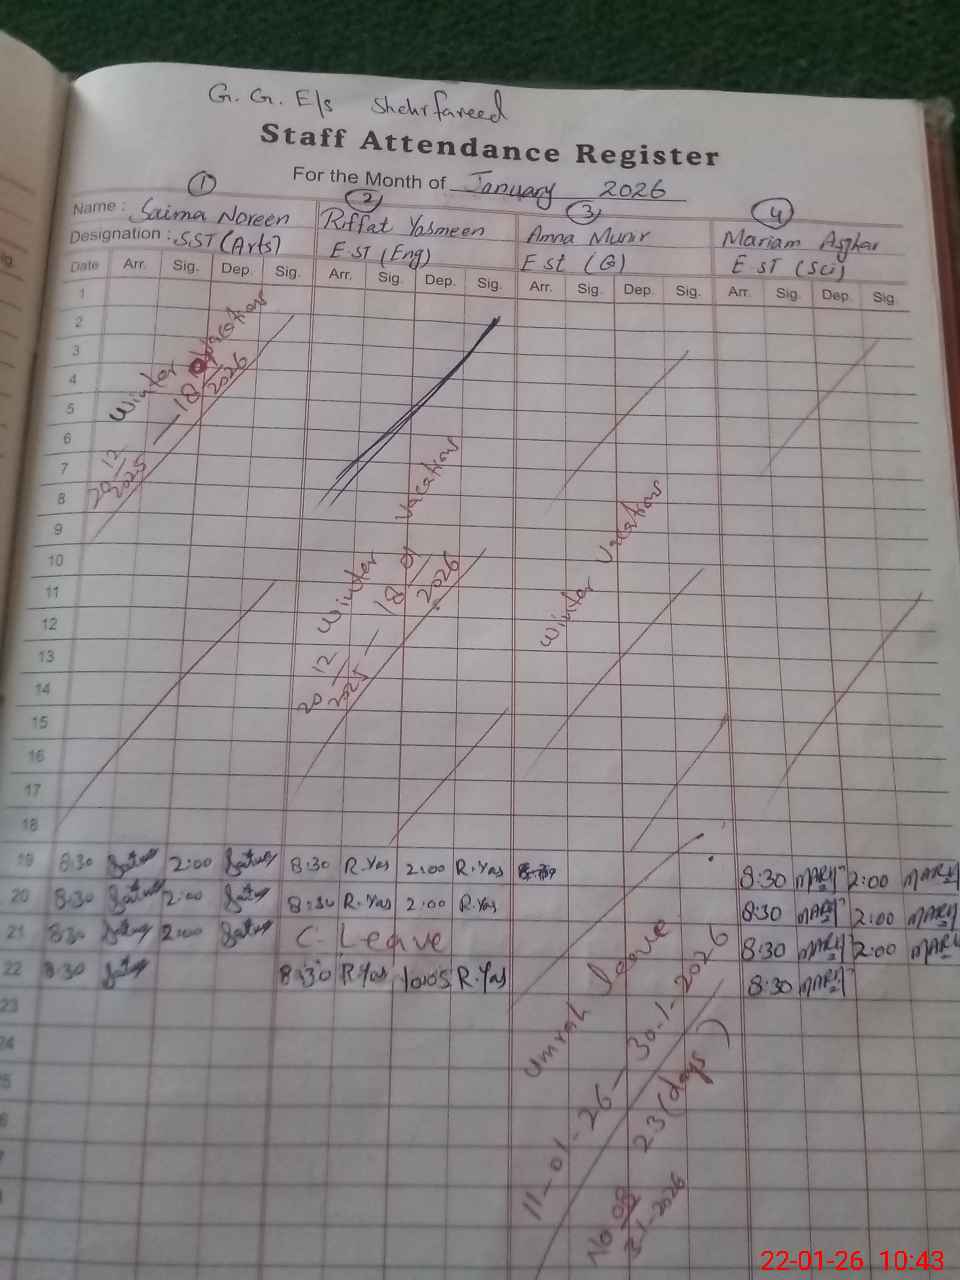 G. G. E/s Shehrfareed
Staff Attendance Register
For the Month of January 2026
1 2 3 4
Name : Saima Noreen Riffat Yasmeen Amna Munir Mariam Asghar
Designation : SST (Arts) E ST (Eng) E st (G) E ST (Sci)
Date Arr. Sig. Dep. Sig. Arr. Sig. Dep. Sig. Arr. Sig. Dep. Sig. Arr. Sig. Dep. Sig.
1
2
3
4
5
6
7
8
9
10
11
12
13
14
15
16
17
18
Winter vacations
20 12/2025 — 18 01/2026
Winter vacations
20 12/2025 — 18 01/2026
Winter vacations
19 8:30 2:00 8:30 R.Yas 2:00 R.Yas 8:30 MARY 2:00 MARY
20 8:30 2:00 8:30 R.Yas 2:00 R.Yas 8:30 MARY 2:00 MARY
21 8:30 2:00 C. Leave 8:30 MARY 2:00 MARY
22 8:30 8:30 R.Yas 10:05 R.Yas 8:30 MARY
23
Umrah leave
11-01-26 — 30-1-2026
23 (days)
22-01-26 10:43